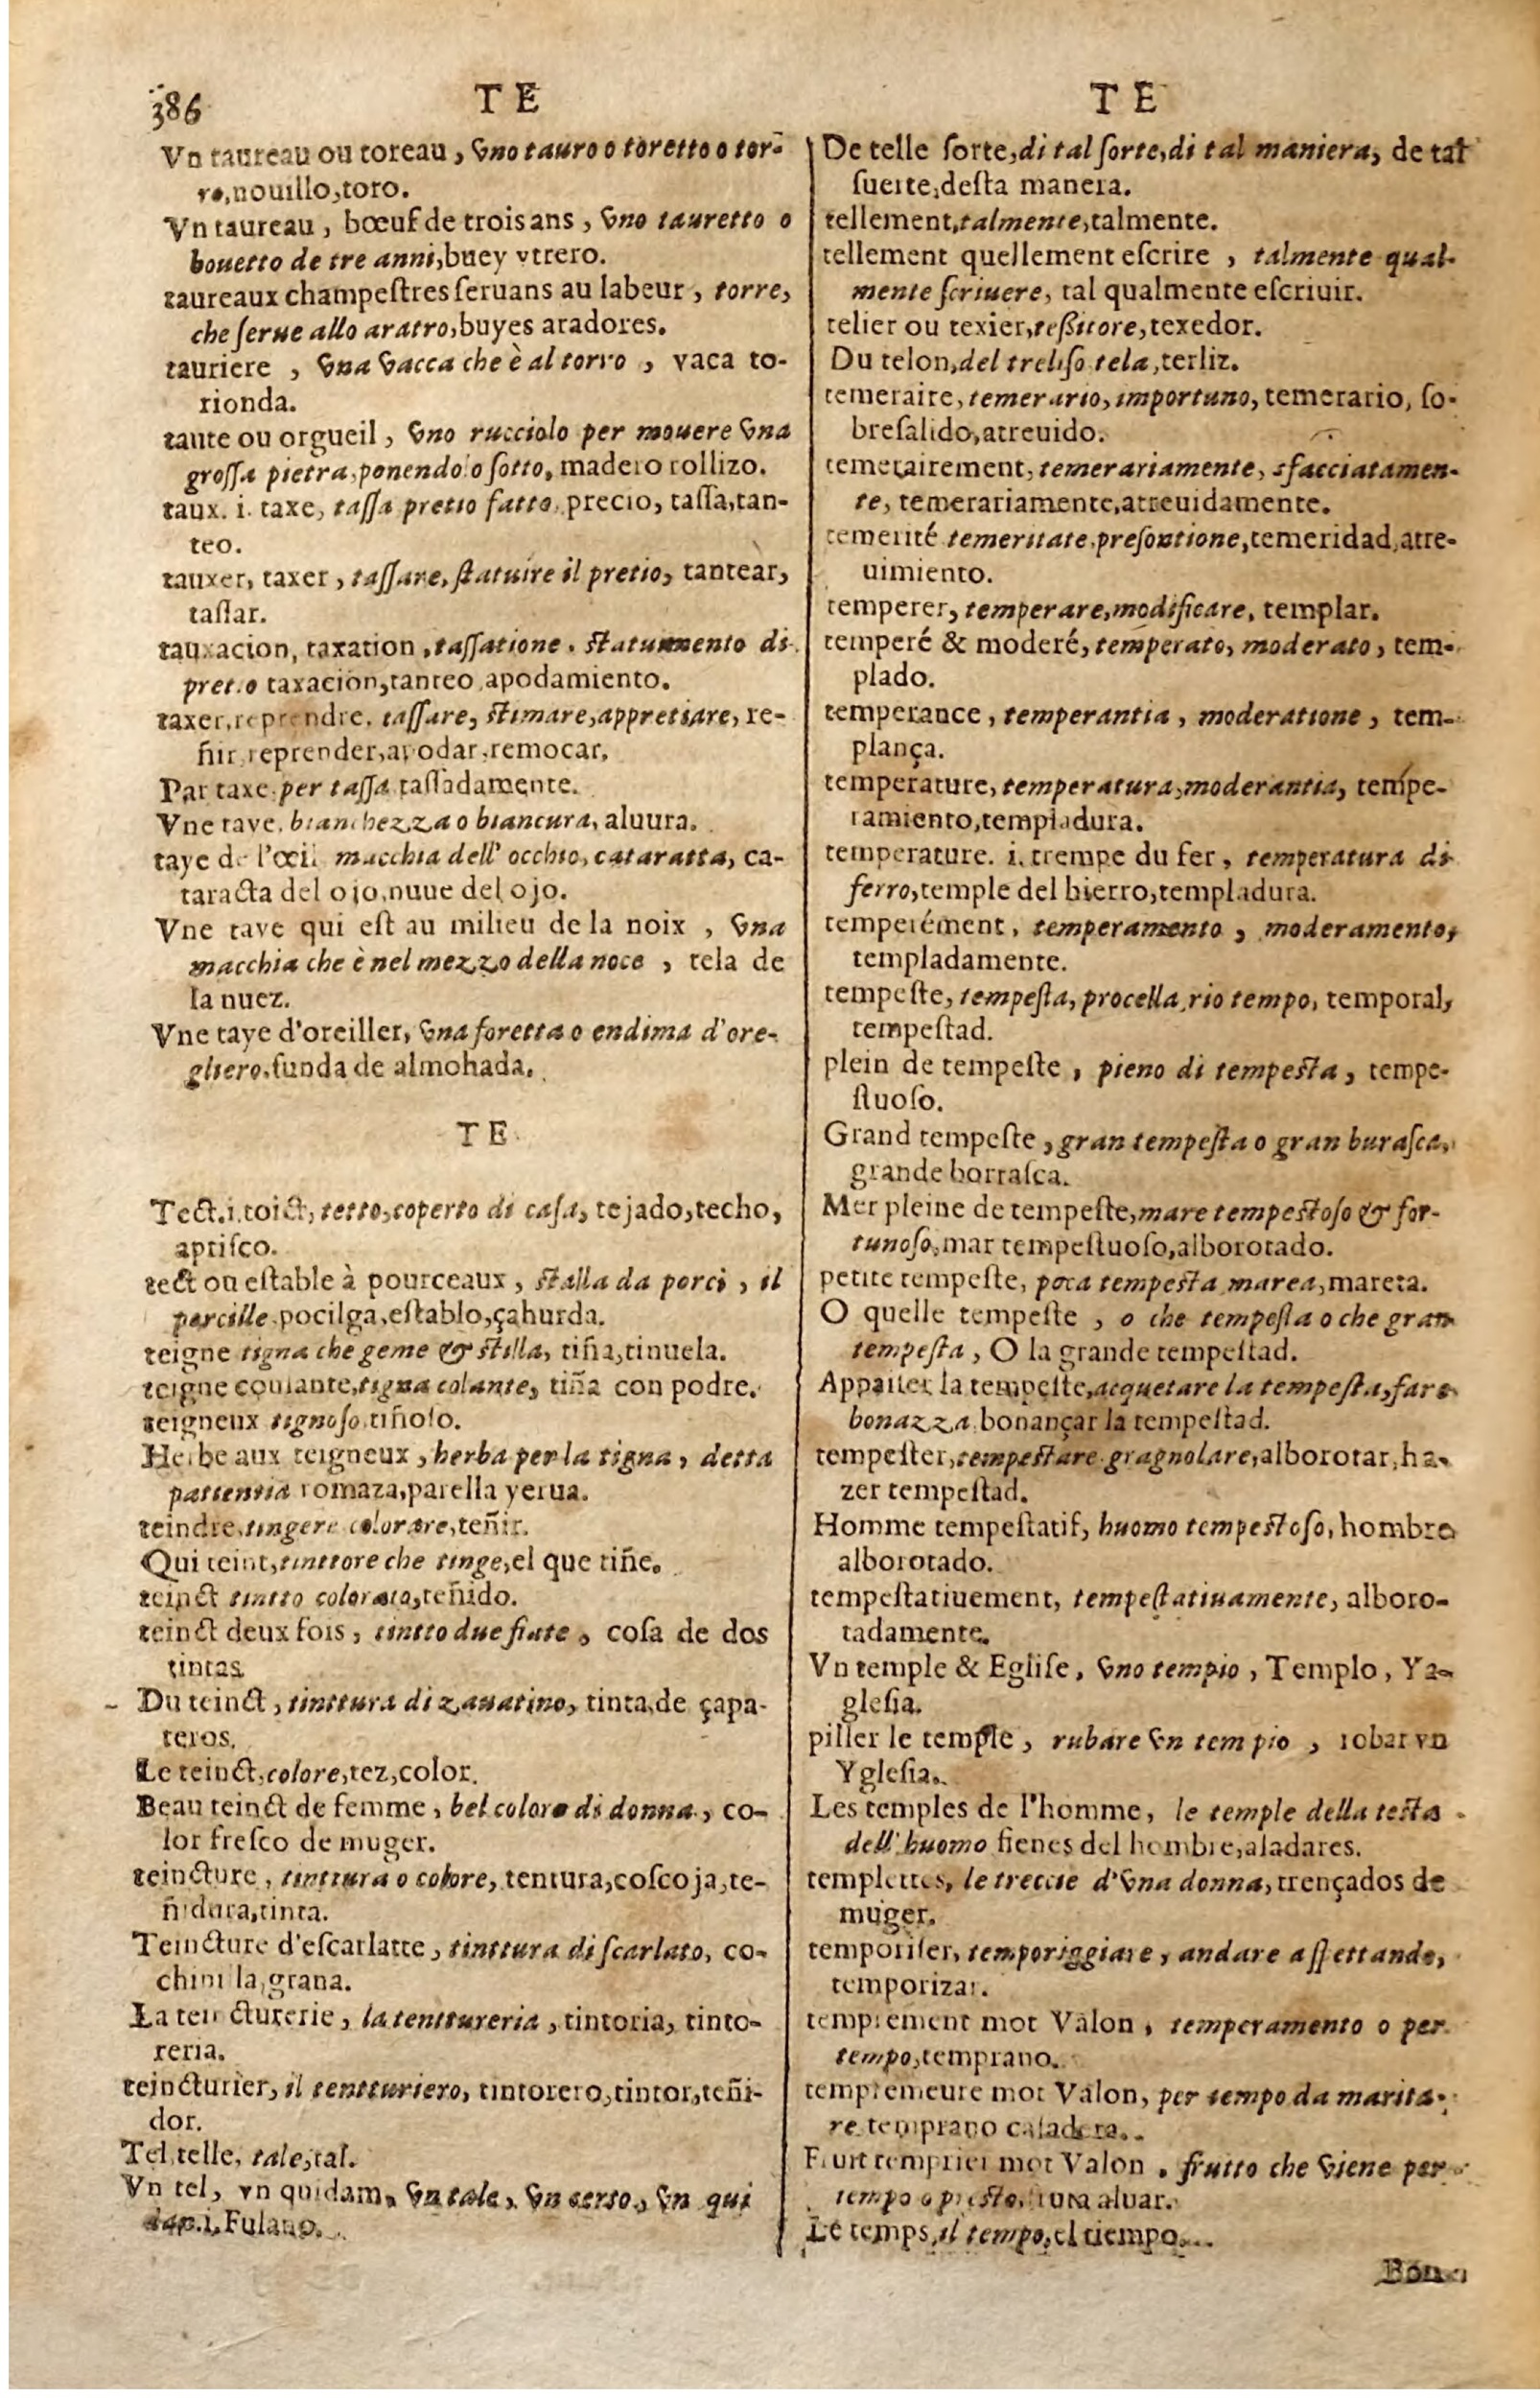 386
TE
TE
Vn taureau ou toreau, vno tauro o toretto o tor-
ro, nouillo, toro.
Vn taureau, bœuf de trois ans, vno tauretto o
bouetto de tre anni, buey vtrero.
taureaux champeſtres ſeruans au labeur, torre,
che ſerue allo aratro, buyes aradores.
tauriere, vna vacca che è al torro, vaca to-
rionda.
taute ou orgueil, vno rucciolo per mouere vna
groſſa pietra, ponendolo ſotto, madero rollizo.
taux. i. taxe, taſſa pretio fatto, precio, taſſa, tan-
teo.
tauxer, taxer, taſſare, ſtatuire il pretio, tantear,
taſſar.
tauxacion, taxation, taſſatione, ſtatumento di
pretio taxacion, tanteo, apodamiento.
taxer, reprendre, taſſare, ſtimare, appretiare, re-
ñir, reprender, apodar, remocar.
Par taxe, per taſſa taſſadamente.
Vne taye, bianchezza o biancura, aluura.
taye de l'œil macchia dell' occhio, cataratta, ca-
taracta del ojo, nuue del ojo.
Vne taye qui eſt au milieu de la noix, vna
macchia che è nel mezzo della noce, tela de
la nuez.
Vne taye d'oreiller, vna foretta o endima d'ore-
gliero, funda de almohada.
TE
Tect. i. toict, tetto, coperto di caſa, tejado, techo,
apriſco.
tect ou eſtable à pourceaux, ſtalla da porci, il
porcille, pocilga, eſtablo, çahurda.
teigne tigna che geme & ſtilla, tiña, tinuela.
teigne coulante, tigna colante, tiña con podre.
teigneux tignoſo tiñoſo.
Herbe aux teigneux, herba per la tigna, detta
patientia romaza, parella yerua.
teindre, tingere colorare, teñir.
Qui teint, tinttore che tinge, el que tiñe.
teinct tintto colorato, teñido.
teinct deux fois, tintto due fiate, coſa de dos
tintas.
Du teinct, tinttura di zauatino, tinta, de çapa-
teros.
Le teinct, colore, tez, color.
Beau teinct de femme, bel colore di donna, co-
lor freſco de muger.
teincture, tinttura o colore, tentura, coſcoja, te-
ñidura, tinta.
Teincture d'eſcarlatte, tinttura di ſcarlato, co-
chinila, grana.
La teincturerie, la tenttureria, tintoria, tinto-
reria.
teincturier, il tentturiero, tintorero, tintor, teñi-
dor.
Tel, telle, tale, tal.
Vn tel, vn quidam, vn tale, vn certo, vn qui
dan. i. Fulano.
De telle ſorte, di tal ſorte, di tal maniera, de tal
ſuerte, deſta manera.
tellement, talmente, talmente.
tellement quellement eſcrire, talmente qual-
mente ſcriuere, tal qualmente eſcriuir.
telier ou texier, teſſitore, texedor.
Du telon, del treliſo tela, terliz.
temeraire, temerario, importuno, temerario, ſo-
breſalido, atreuido.
temerairement, temerariamente, sfacciatamen-
te, temerariamente, atreuidamente.
temerité temeritate, preſontione, temeridad, atre-
uimiento.
temperer, temperare, modificare, templar.
temperé & moderé, temperato, moderato, tem-
plado.
temperance, temperantia, moderatione, tem-
plança.
temperature, temperatura, moderantia, tempe-
ramiento, templadura.
temperature. i. trempe du fer, temperatura di
ferro, temple del hierro, templadura.
temperément, temperamento, moderamento,
templadamente.
tempeſte, tempeſta, procella, rio tempo, temporal,
tempeſtad.
plein de tempeſte, pieno di tempeſta, tempe-
ſtuoſo.
Grand tempeſte, gran tempeſta o gran buraſca,
grande borraſca.
Mer pleine de tempeſte, mare tempeſtoſo & for-
tunoſo, mar tempeſtuoſo, alborotado.
petite tempeſte, poca tempeſta marea, mareta.
O quelle tempeſte, o che tempeſta o che gran
tempeſta, O la grande tempeſtad.
Appaiſer la tempeſte, acquetare la tempeſta, fare
bonazza bonançar la tempeſtad.
tempeſter, tempeſtare gragnolare, alborotar, ha-
zer tempeſtad.
Homme tempeſtatif, huomo tempeſtoſo, hombre
alborotado.
tempeſtatiuement, tempeſtatiuamente, alboro-
tadamente.
Vn temple & Egliſe, vno tempio, Templo, Ya-
gleſia.
piller le temple, rubare vn tempio, robar vn
Ygleſia.
Les temples de l'homme, le temple della teſta
dell' huomo ſienes del hombre, aladares.
templettes, le treccie d'vna donna, trençados de
muger.
temporiſer, temporiggiare, andare aſpettando,
temporizar.
temprement mot Valon, temperamento o per
tempo, temprano.
tempremeure mot Valon, per tempo da marita-
re temprano caſadera.
Fruit temprier mot Valon, frutto che viene per
tempo o preſto, fruta aluar.
Le temps, il tempo, el tiempo.
Bon